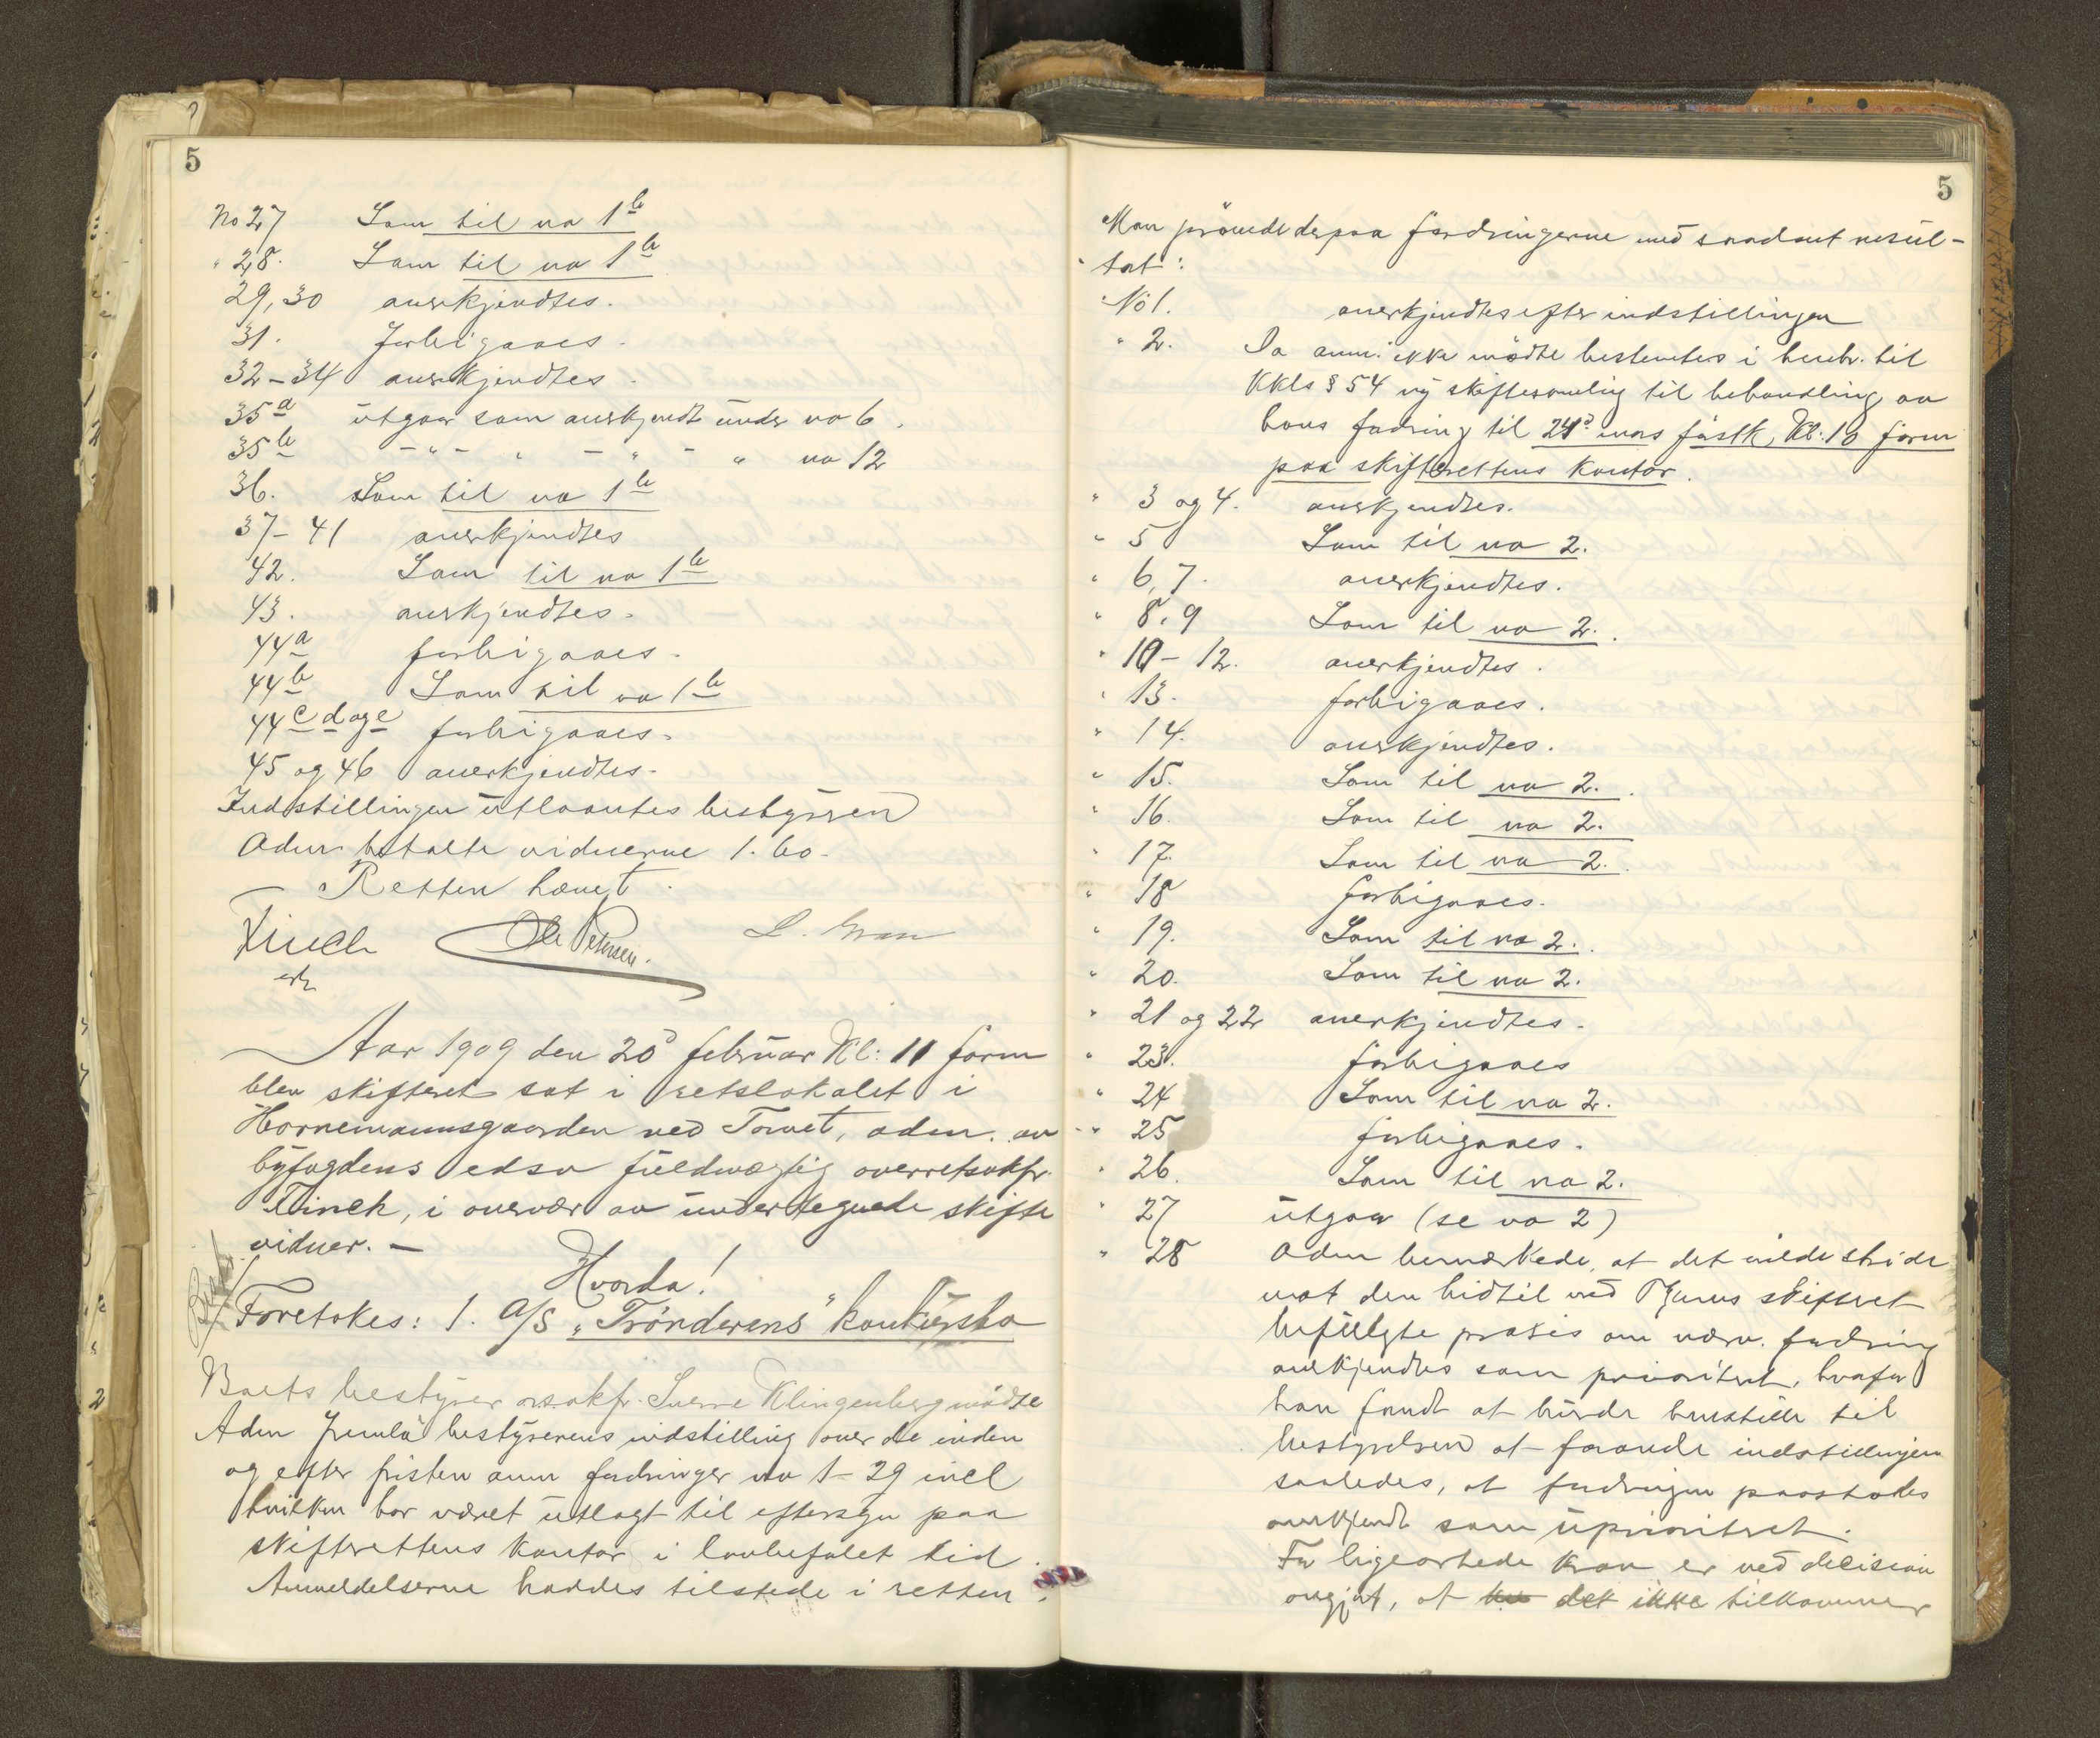 5
No 27 Som til no 1 b
" 28. Som til no 1 b
29, 30 anerkjendtes.
31. Forbigaaes.
32 – 34 anerkjendtes.
35 a utgaar som anerkjendt under no 6.
35 b – " – " – " – " no 12
36. Som til no 1 b
37 – 41 anerkjendtes
42. Som til no 1 b
43. anerkjendtes.
44 a forbigaaes.
44 b Som til no 1 b
44 c d og e forbigaaes.
45 og 46 anerkjendtes.
Indstillingen utlaantes bestyreren
Adm betalte vidnerne 1.60.
Retten hævet.
Finch Ole Petersen. L. Gran
Aar 1909 den 20 februar Kl: 11 form
blev skifteret sat i retslokalet i
Hornemannsgaarden ved Torvet, adm. av
byfogdens edsv fuldmægtig overretssakfr.
Finch, i overvær av undertegnede skifte
vidner. –
Hvorda!
Foretokes: 1. A/S "Trønderens" konkursbo
Boets bestyrer orsakfr. Sverre Klingenberg mødte
Adm freml. bestyrerens indstilling over de inden
og efter fristen anm fordringer no 1 – 29 incl
hvilken har været utlagt til eftersyn paa
skifterettens kontor i lovbefalet tid.
Anmeldelserne haddes tilstede i retten.
5
Man prøvede derpaa fordringerne med saadant resul-
tat:
No 1. anerkjendtes efter indstillingen
" 2. Da anm. ikke mødte bestemtes i henh. til
Kkls § 54 ny skiftesamling til behandling av
hans fordring til 24d mars førstk, Kl: 10 form
paa skifterettens kontor.
" 3 og 4. anerkjendtes.
" 5 Som til no 2.
" 6, 7. anerkjendtes.
" 8, 9 Som til no 2.
" 10 – 12. anerkjendtes.
" 13. forbigaaes.
" 14. anerkjendtes.
" 15. Som til no 2.
" 16. Som til no 2.
" 17. Som til no 2.
" 18 forbigaaes.
" 19. Som til no 2.
" 20. Som til no 2.
" 21 og 22 anerkjendtes.
" 23. forbigaaes
" 24 Som til no 2.
" 25 forbigaaes.
" 26. Som til no 2.
" 27 utgaar (se no 2)
" 28 Adm bemærkede, at det vilde stride
mot den hidtil ved Thjems skifteret
befulgte praxis om nærv. fordring
anerkjendtes som prioritert, hvorfor
han fandt at burde henstille til
bestyrelsen at forandre indstillingen
saaledes, at fordringen paastodes
anerkjendt som uprioritert.
For ligeartede krav er ved decision
avgjort, at det ikke tilkommer